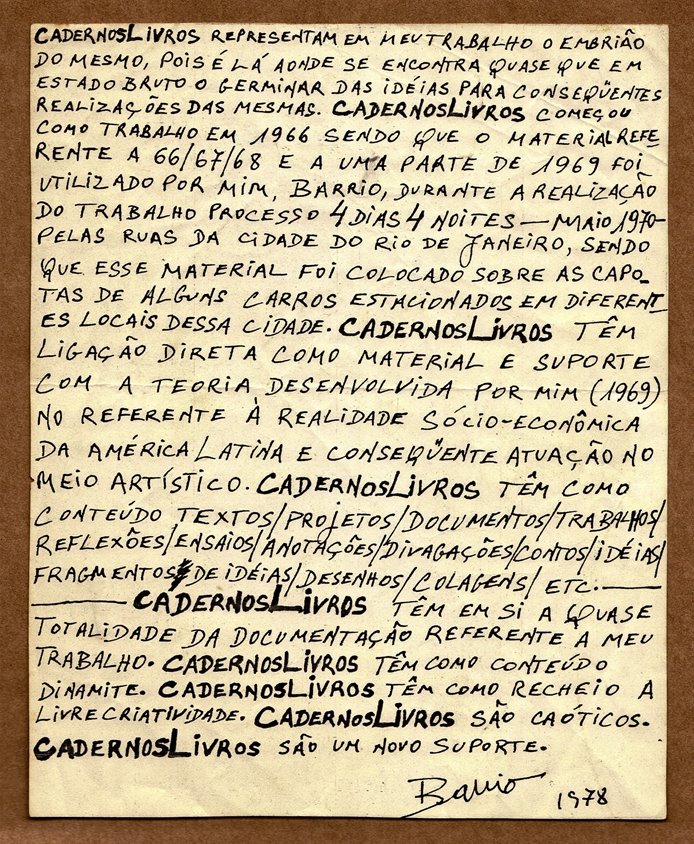 CADERNOSLIVROS REPRESENTAM EM MEU TRABALHO O EMBRIÃO
DO MESMO, POIS É LÁ AONDE SE ENCONTRA QUASE QUE EM
ESTADO BRUTO O GERMINAR DAS IDÉIAS PARA CONSEQÜENTES
REALIZAÇÕES DAS MESMAS. CADERNOSLIVROS COMEÇOU
COMO TRABALHO EM 1966 SENDO QUE O MATERIAL REFE
RENTE A 66/67/68 E A UMA PARTE DE 1969 FOI
UTILIZADO POR MIM, BARRIO, DURANTE A REALIZAÇÃO
DO TRABALHO PROCESSO 4 DIAS 4 NOITES — MAIO 1970-
PELAS RUAS DA CIDADE DO RIO DE JANEIRO, SENDO
QUE ESSE MATERIAL FOI COLOCADO SOBRE AS CAPO_
TAS DE ALGUNS CARROS ESTACIONADOS EM DIFERENT
ES LOCAIS DESSA CIDADE. CADERNOSLIVROS TÊM
LIGAÇÃO DIRETA COMO MATERIAL E SUPORTE
COM A TEORIA DESENVOLVIDA POR MIM (1969)
NO REFERENTE À REALIDADE SÓCIO-ECONÔMICA
DA AMÉRICA LATINA E CONSEQÜENTE ATUAÇÃO NO
MEIO ARTÍSTICO. CADERNOSLIVROS TÊM COMO
CONTEÚDO TEXTOS/PROJETOS/DOCUMENTOS/TRABALHOS/
REFLEXÕES/ENSAIOS/ANOTAÇÕES/DIVAGAÇÕES/CONTOS/IDÉIAS/
FRAGMENTOS DE IDÉIAS/DESENHOS/COLAGENS/ ETC.——
——— CADERNOSLIVROS TÊM EM SI A QUASE
TOTALIDADE DA DOCUMENTAÇÃO REFERENTE A MEU
TRABALHO. CADERNOSLIVROS TÊM COMO CONTEÚDO
DINAMITE. CADERNOSLIVROS TÊM COMO RECHEIO A
LIVRE CRIATIVIDADE. CADERNOSLIVROS SÃO CAÓTICOS.
CADERNOSLIVROS SÃO UM NOVO SUPORTE.
Barrio 1978